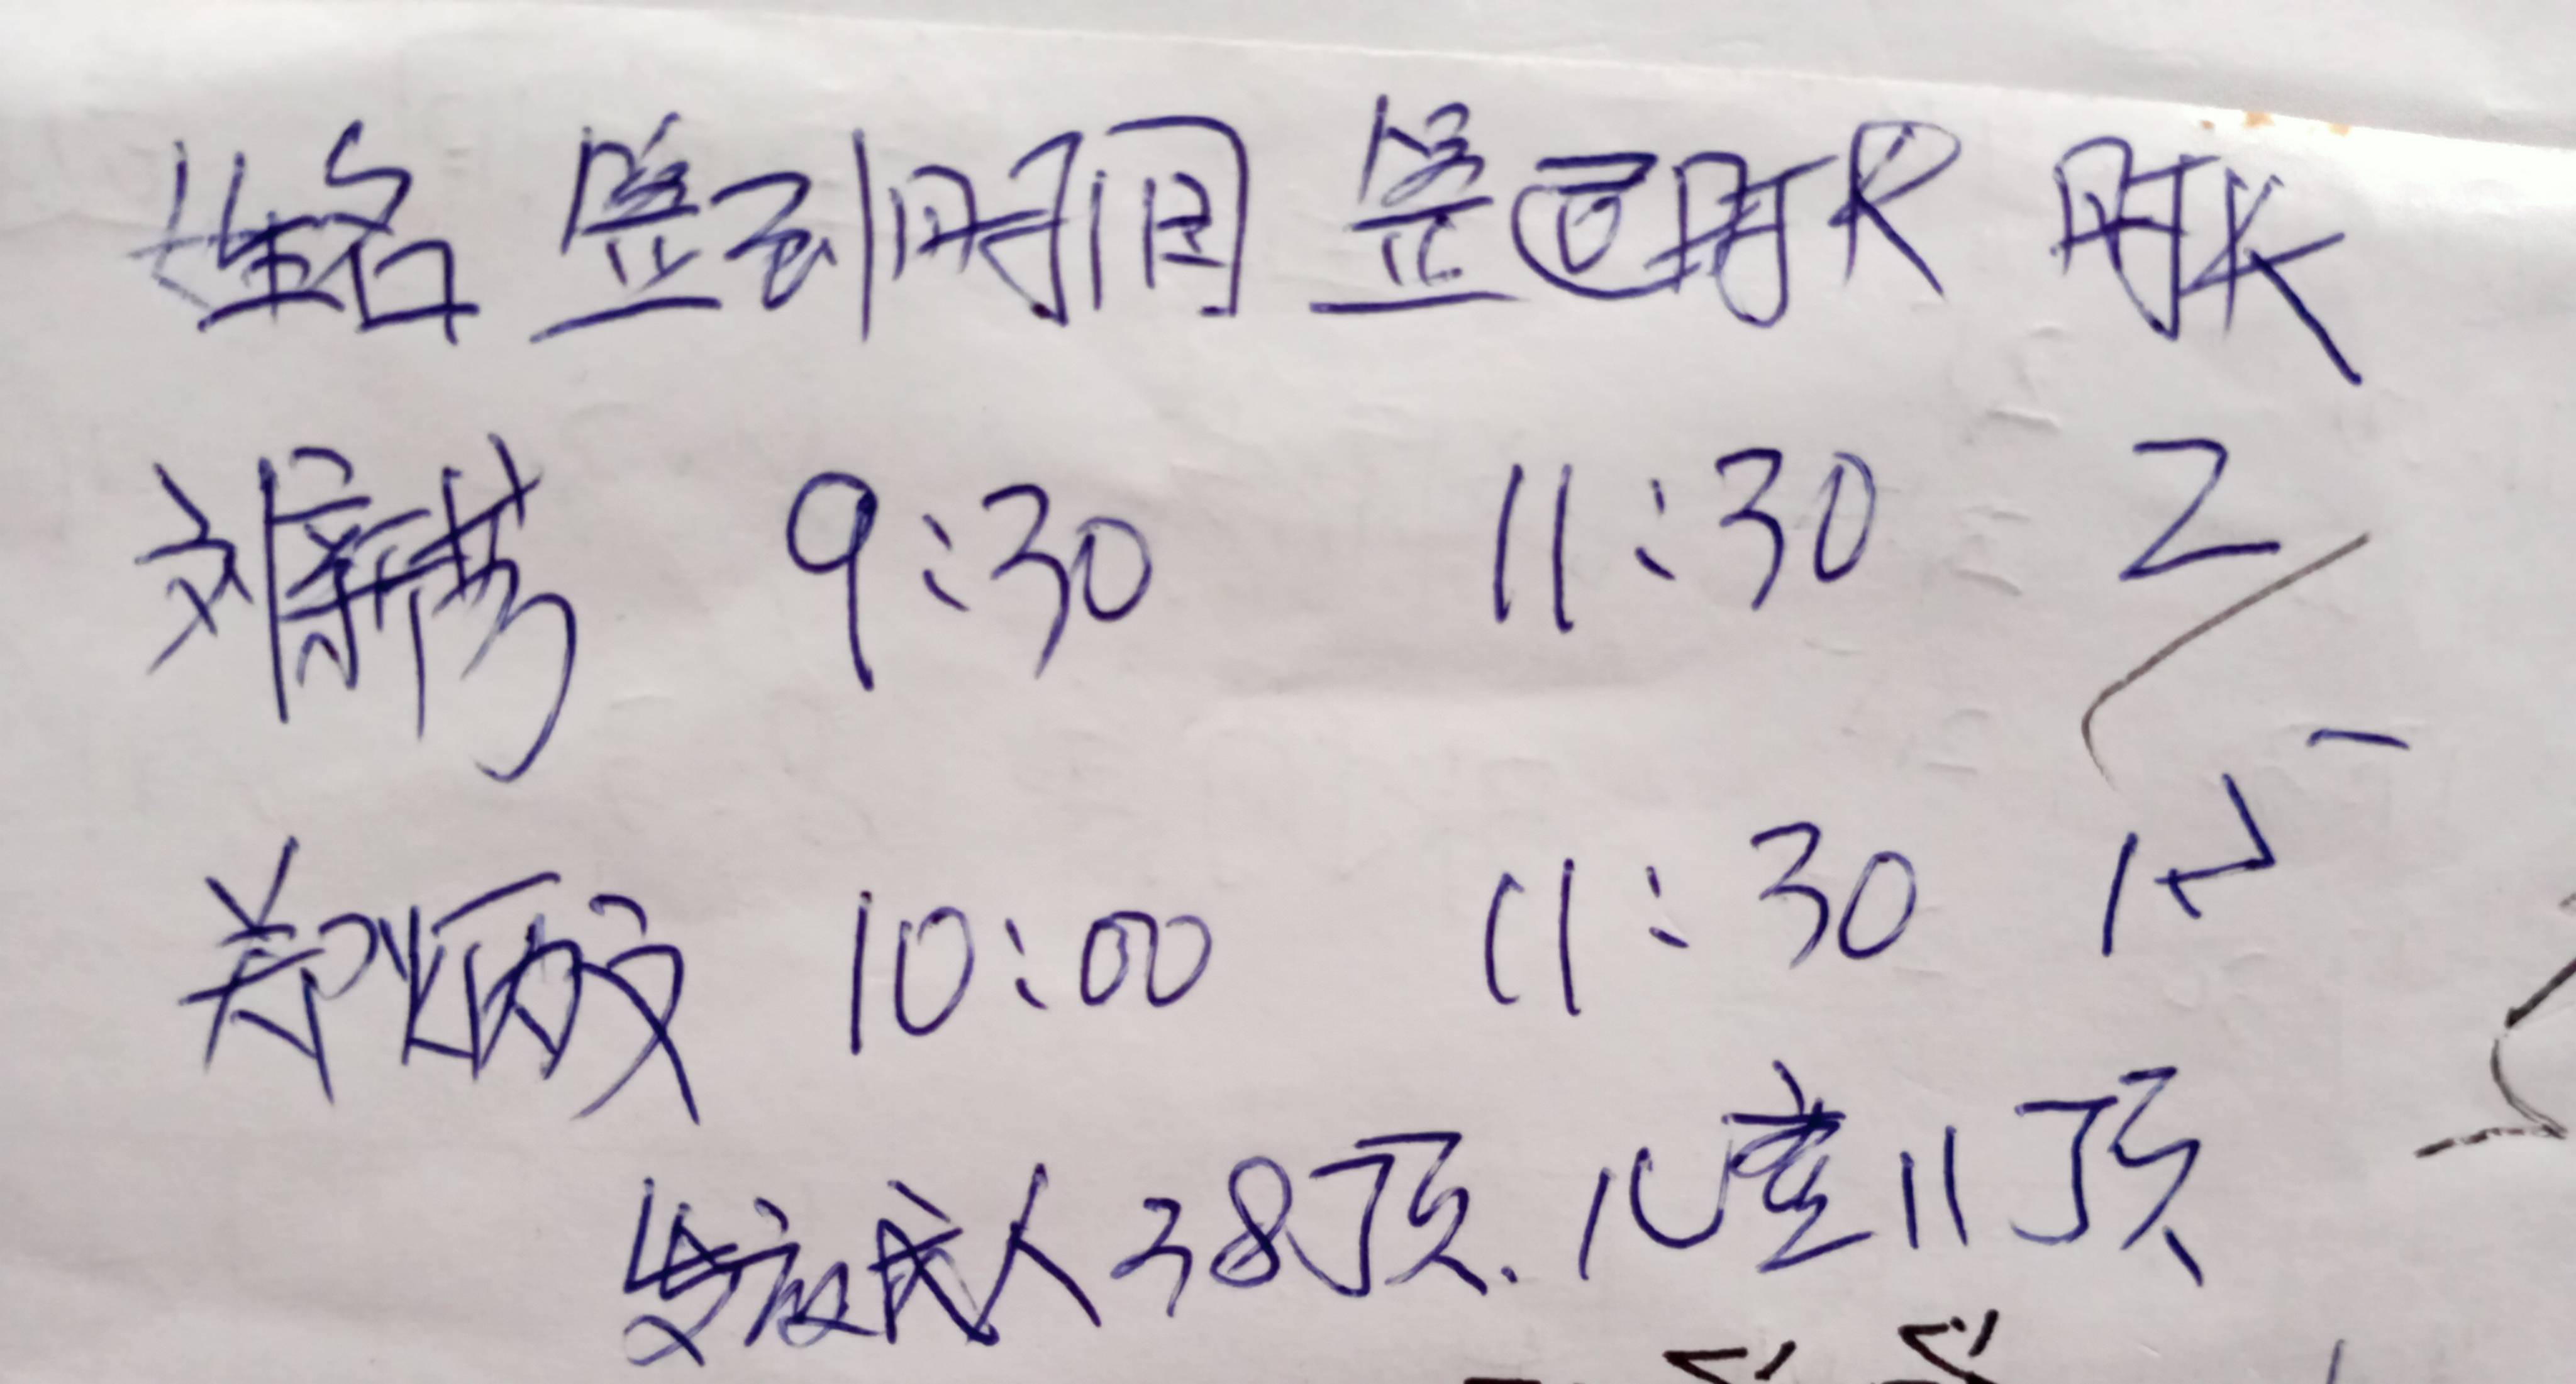 姓名 签到时间 签退时间 时长
刘 9:30 11:30 2
郑炳文 10:00 11:30 1.5
发放成人38顶.儿童11顶